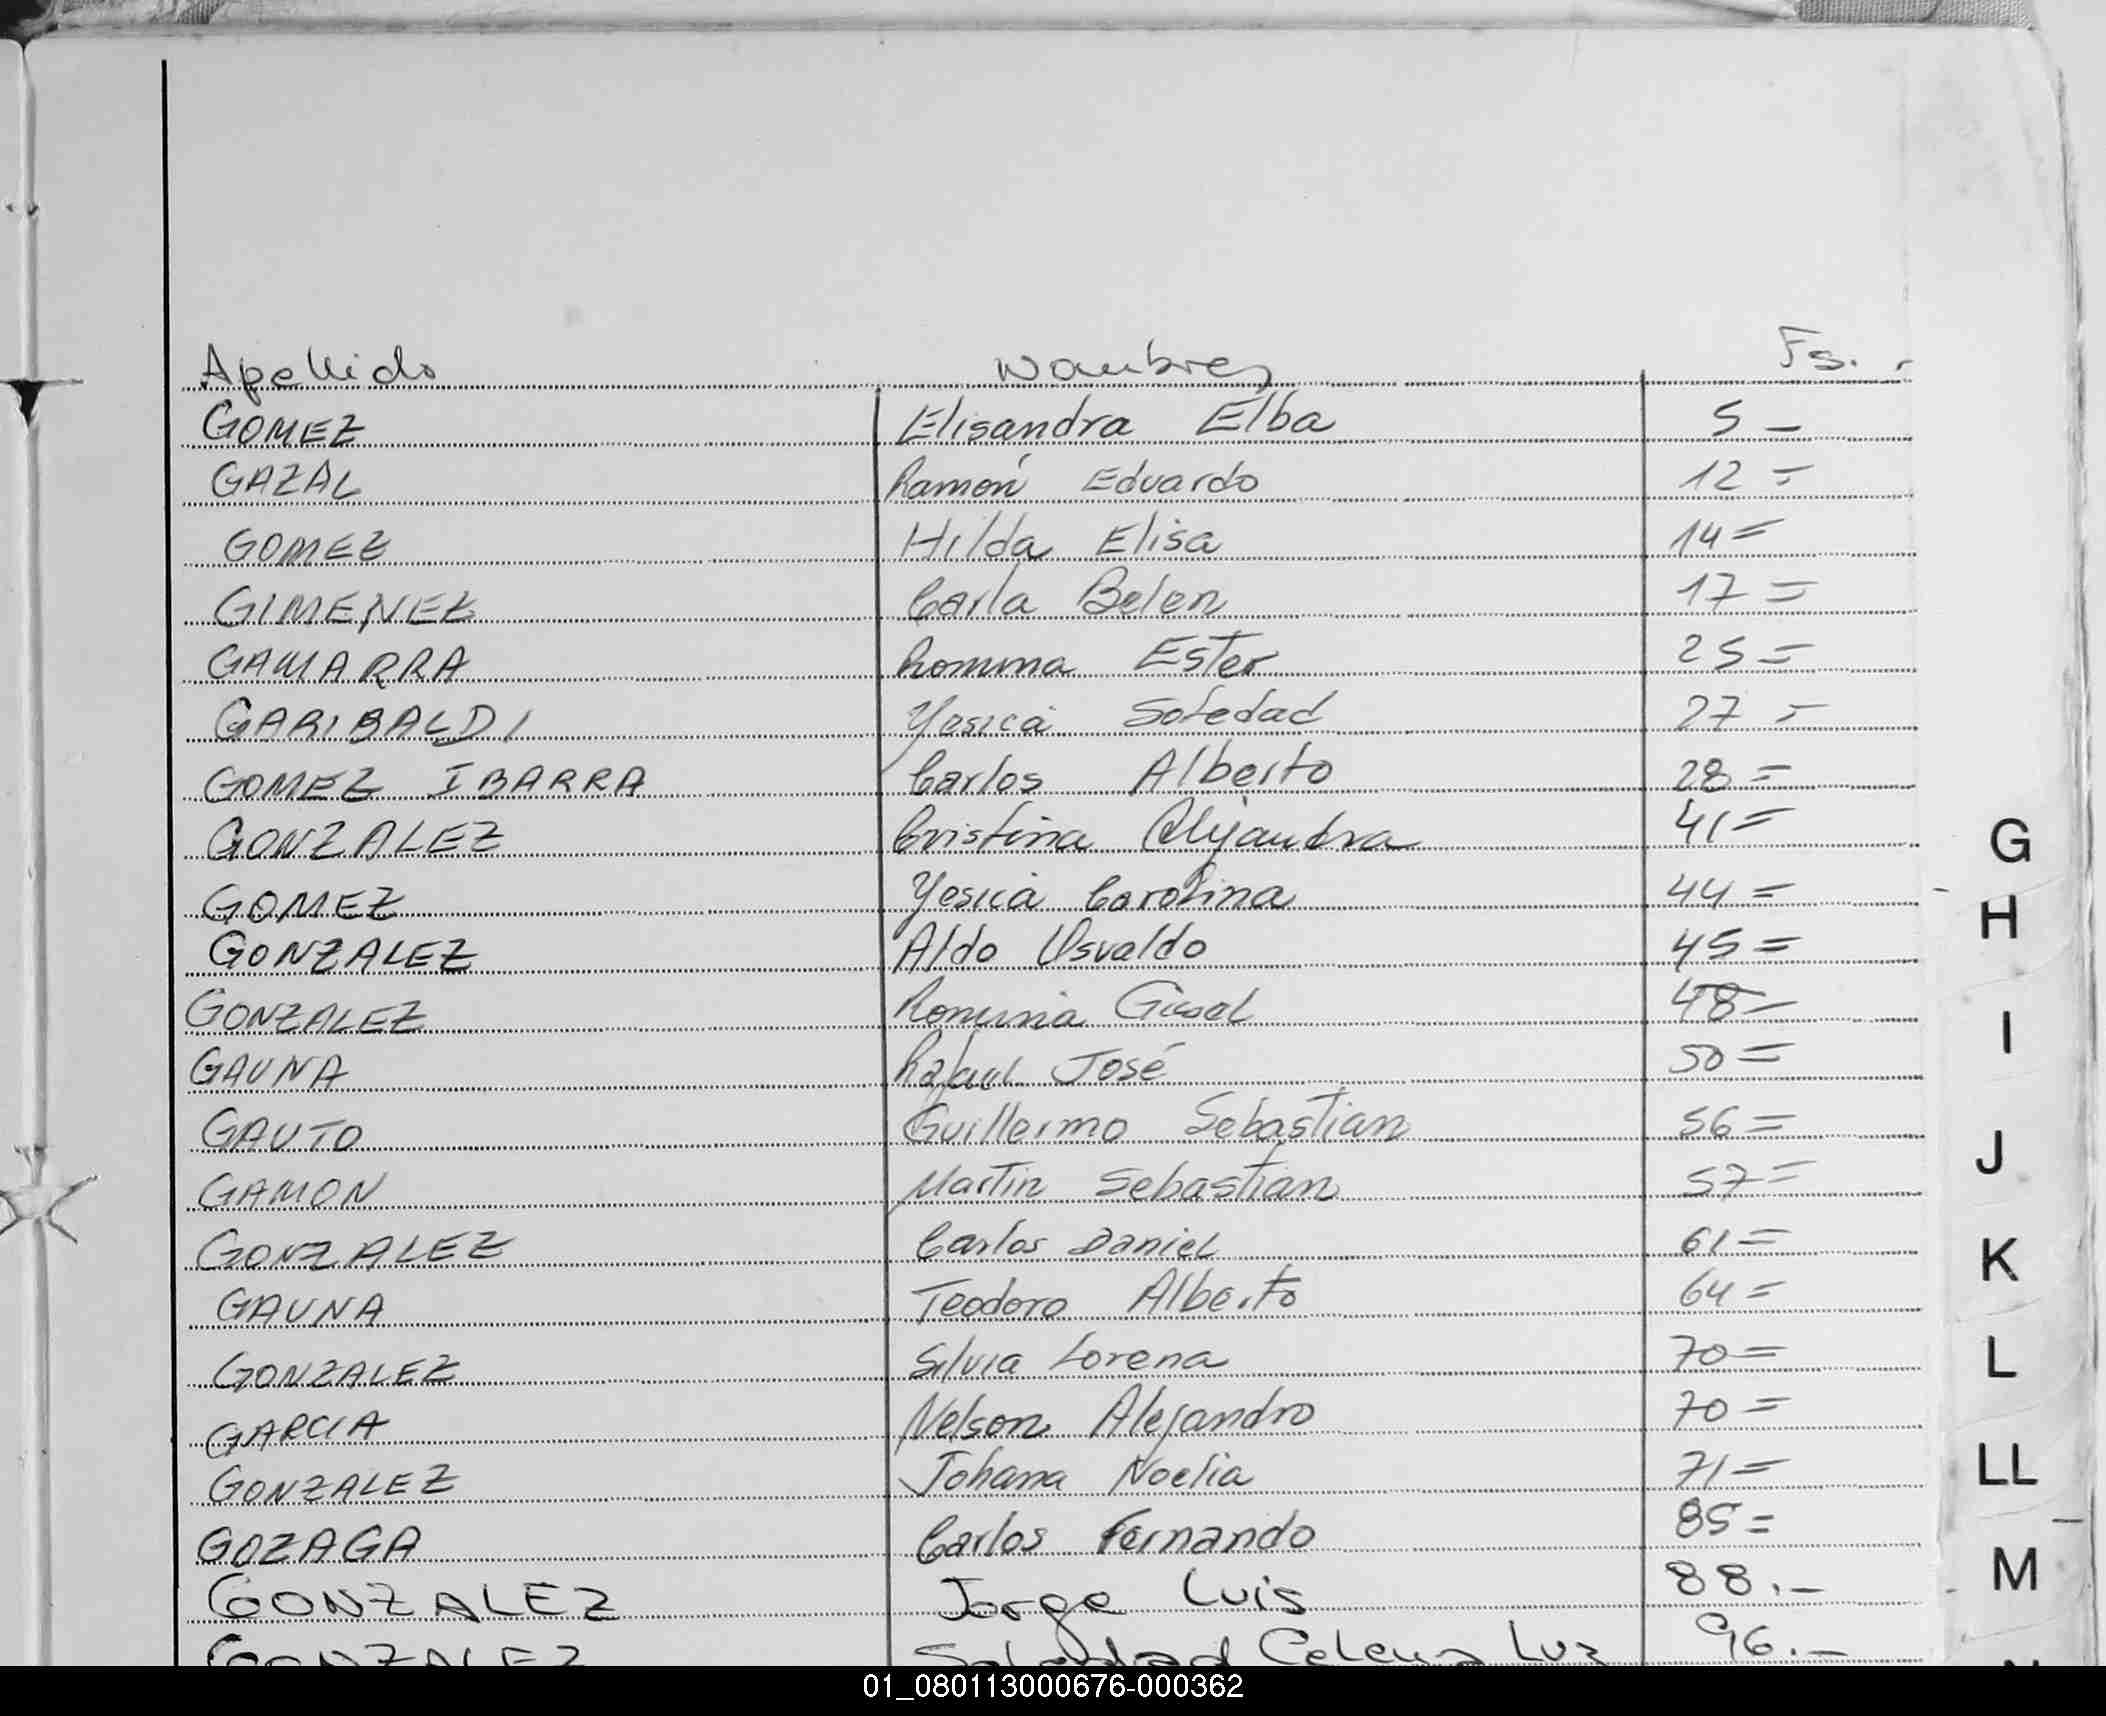 Apellido Nombres Fs. -
GOMEZ Elisandra Elba 5 -
GAZAL Ramón Eduardo 12 =
GOMEZ Hilda Elisa 14 =
GIMENEZ Carla Belen 17 =
GAMARRA Romina Ester 25 =
GARIBALDI Yesica Soledad 27 =
GOMEZ IBARRA Carlos Alberto 28 =
GONZALEZ Cristina Alejandra 41 =
GOMEZ Yesica Carolina 44 =
GONZALEZ Aldo Osvaldo 45 =
GONZALEZ Romina Gisel 48 =
GAUNA Rafael José 50 =
GAUTO Guillermo Sebastian 56 =
GAMON Martin Sebastian 57 =
GONZALEZ Carlos Daniel 61 =
GAUNA Teodoro Alberto 64 =
GONZALEZ Silvia Lorena 70 =
GARCIA Nelson Alejandro 70 =
GONZALEZ Johana Noelia 71 =
GOZAGA Carlos Fernando 85 =
GONZALEZ Jorge Luis 88.-
GONZALEZ Soledad Celena Luz 96.-
G
H
I
J
K
L
LL
M
01_080113000676-000362